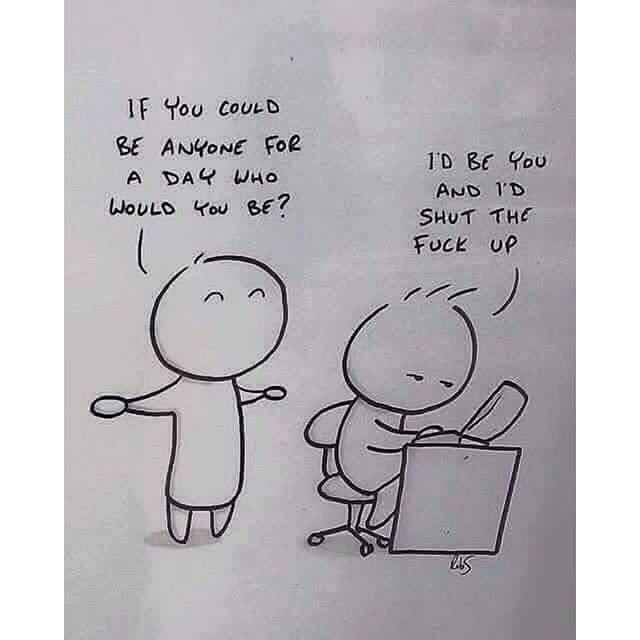 IF YOU COULD
BE ANYONE FOR
A DAY WHO
WOULD YOU BE?
I'D BE YOU
AND I'D
SHUT THE
FUCK UP
RobS